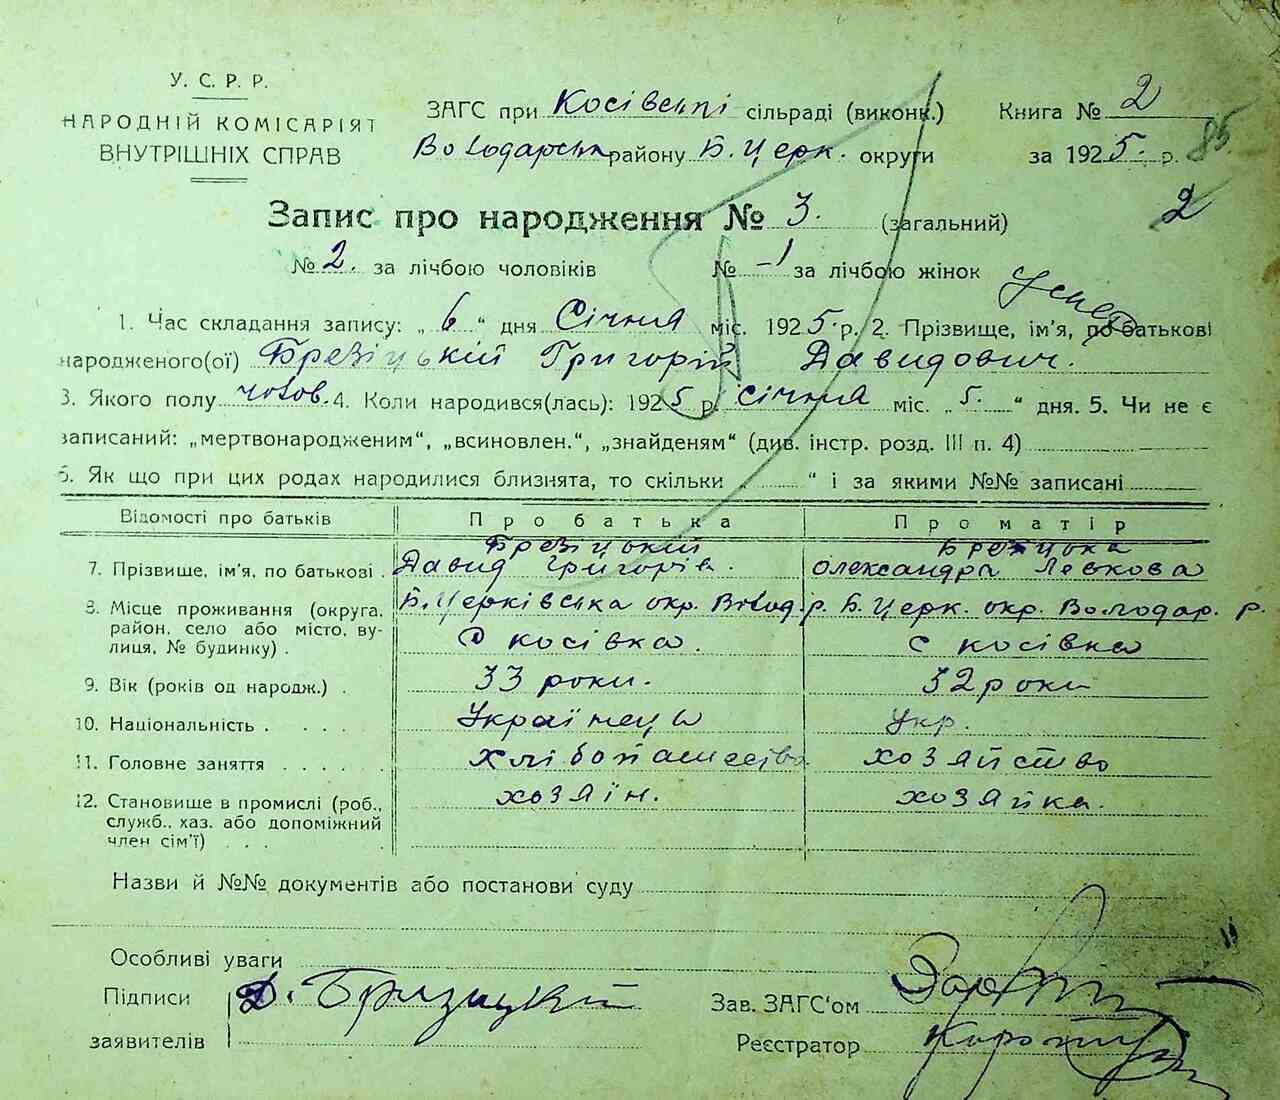 У. С. Р. Р.
НАРОДНІЙ КОМІСАРІЯТ
ВНУТРІШНІХ СПРАВ
ЗАГС при Косівській сільраді (виконк.)
Володарськ району Б. Церк. округи
Книга № 2
за 1925. р. 85.
2
Запис про народження № 3. (загальний)
№ 2. за лічбою чоловіків № -1 за лічбою жінок
1. Час складання запису: „ 6 “ дня Січня міс. 1925 р. 2. Прізвище, ім'я, по батькові
народженого(ої) Брезіцькій Григорій Давидович.
3. Якого полу чолов. 4. Коли народився(лась): 1925 р. січня міс. „ 5. “ дня. 5. Чи не є
записаний: „мертвонародженим“, „всиновлен.“, „знайденям“ (див. інстр. розд. III п. 4)
6. Як що при цих родах народилися близнята, то скільки „ “ і за якими №№ записані
Відомості про батьків Про батька Про матір
Брезіцький Брезіцька
7. Прізвище, ім'я, по батькові . Давид Григорів. Олександра Левкова
8. Місце проживання (округа, Б. Церківська окр. Волод. р. Б. Церк. окр. Володар. р.
район, село або місто, ву-
лиця, № будинку) . С косівка. с косівка
9. Вік (років од народж.) . 33 роки. 32 роки
10. Національність . . . . Українець Укр.
11. Головне заняття . . . . . хлібопашество хозяйство
12. Становище в промислі (роб., хозяін. хозяйка.
служб., хаз. або допоміжний
член сім'ї) . . .
Назви й №№ документів або постанови суду
Особливі уваги
Підписи Д. Брязицкій
заявителів
Зав. ЗАГС'ом
Реєстратор